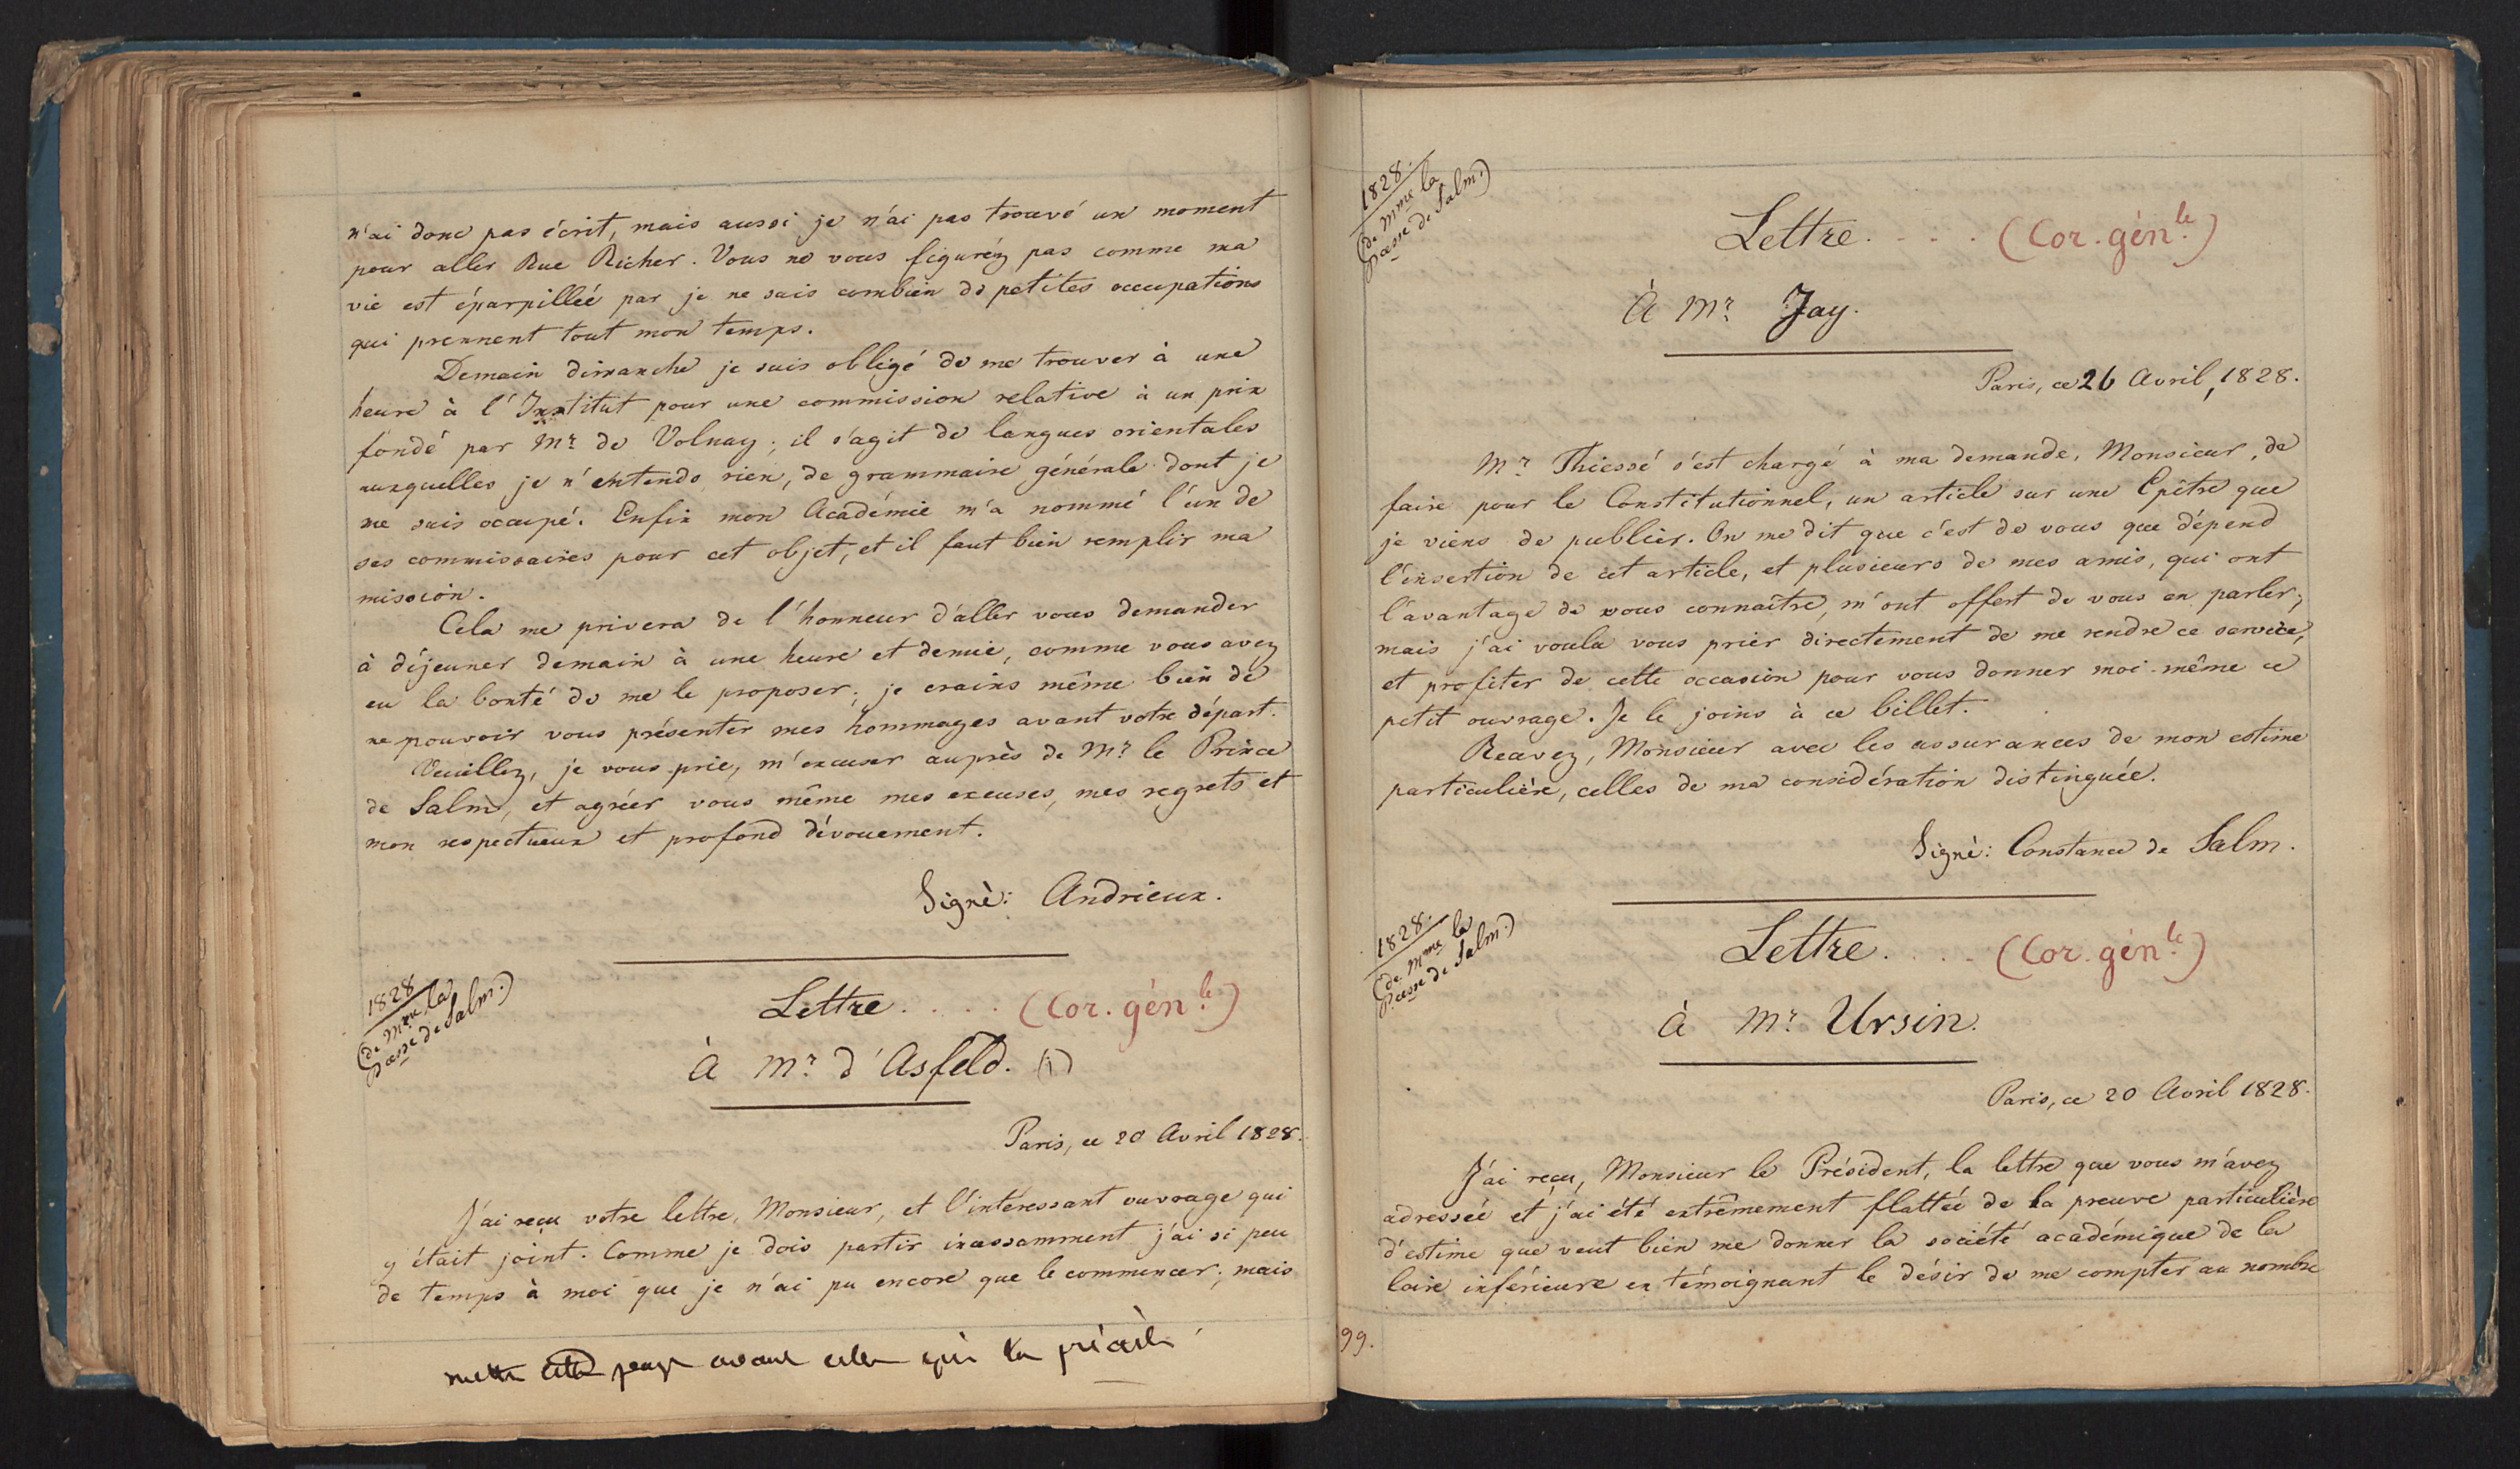 n'ai donc pas écrit, mais aussi je n'ai pas trouvé un moment
pour aller Rue Richer. Vous ne vous figuréz pas comme ma
vie est éparpillée par je ne sais combien de petites occupations
qui prennent tout mon temps.
Demain dimanche je suis obligé de me trouver à une
heure à l'Institut pour une commission relative à un prix
fondé par Mr. de Volnay; il s'agit de langues orientales
auxquelles je n'entends rien, de grammaire générale dont je
me suis occupé. Enfin mon Académie m'a nommé l'un de
ses commissaires pour cet objet, et il faut bien remplir ma
mission.
Cela me privera de l'honneur d'aller vous demander
à déjeuner demain à une heure et demie, comme vous avez
eu la bonté de me le proposer; je crains même bien de
ne pouvoir vous présenter mes hommages avant votre départ.
Veuillez, je vous prie, m'excuser auprès de Mr. le Prince
de Salm, et agréer vous même mes excuses, mes regrets et
mon respectueux et profond dévouement.
Signé: Andrieux.
1828
(de Mme la
Pcesse de Salm.)
Lettre . . . . (Cor. génle.)
À Mr. d'Asfeld. (1)
Paris, ce 20 Avril 1828.
J'ai reçu votre lettre, Monsieur, et l'intéressant ouvrage qui
y était joint. Comme je dois partir incessamment j'ai si peu
de temps à moi que je n'ai pu encore que le commencer; mais
mettre cette page avant celle qui la précède
1828.
(de Mme la
Pcesse de Salm.)
Lettre. . . . (Cor. génle.)
À Mr. Jay.
Paris, ce 26 Avril, 1828.
Mr. Thiessé s'est chargé à ma demande, Monsieur, de
faire pour le Constitutionnel, un article sur une Epître que
je viens de publier. On me dit que c'est de vous que dépend
l'insertion de cet article, et plusieurs de mes amis, qui ont
l'avantage de vous connaître, m'ont offert de vous en parler;
mais j'ai voulu vous prier directement de me rendre ce service,
et profiter de cette occasion pour vous donner moi-même ce
petit ouvrage. Je le joins à ce billet.
Recevez, Monsieur avec les assurances de mon estime
particulière, celles de ma considération distinguée.
Signé: Constance de Salm.
1828.
(de Mme la
Pcesse de Salm.)
Lettre. . . . (Cor. génle.)
À Mr. Ursin.
Paris, ce 20 Avril 1828.
J'ai reçu, Monsieur le Président, la lettre que vous m'avez
adressée et j'ai été extrêmement flattée de la preuve particulière
d'estime que veut bien me donner la société académique de la
loire inférieure en témoignant le désir de me compter au nombre
99.